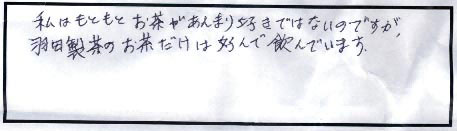 私はもともとお茶があんまり好きではないのですが、
羽田製茶のお茶だけは好んで飲んでいます。